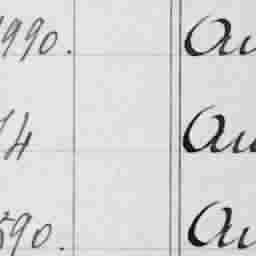 990. Au
14 Au
590. Au